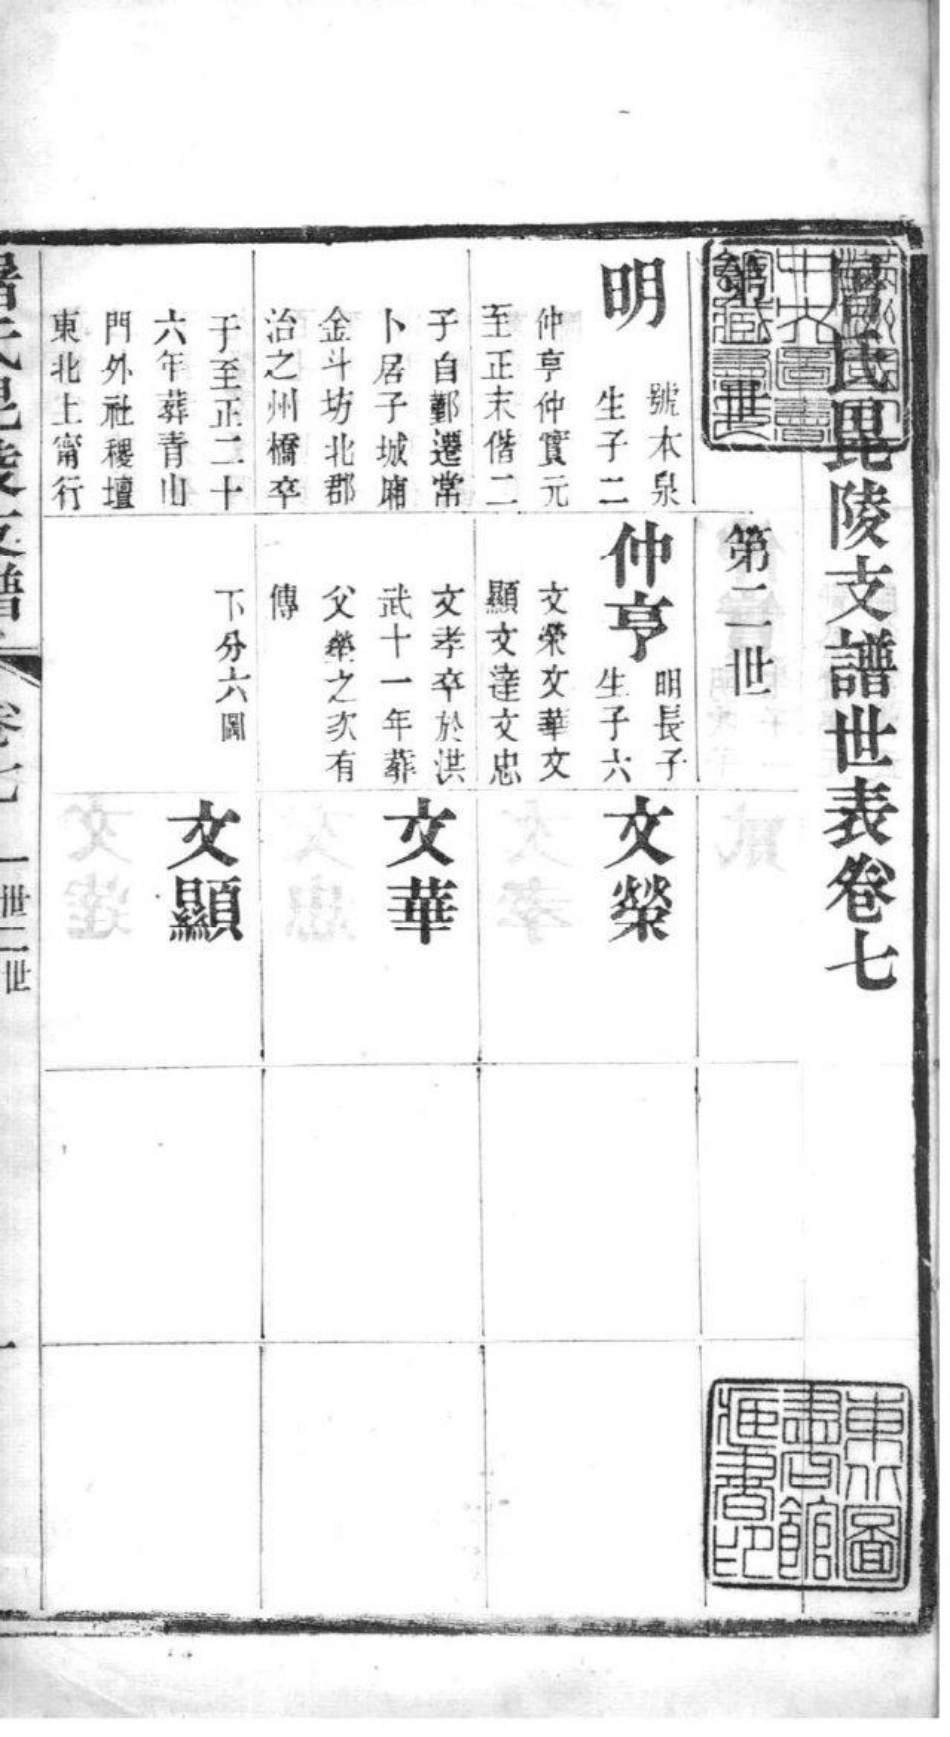 屠氏毘陵支譜世表卷七
第一世
明
號本泉
生子二
仲亨仲實元
至正末偕二
子自鄞遷常
卜居子城廂
金斗坊北郡
治之州橋卒
于至正二十
六年葬青山
門外社稷壇
東北上甯行
第二世
仲亨
明長子
生子六
文榮文華文
顯文達文忠
文孝卒於洪
武十一年葬
父塋之次有
傳
下分六圖
文榮
文華
文顯
東北圖
書館
藏書印
屠氏毘陵支譜
卷七
一世二世
一